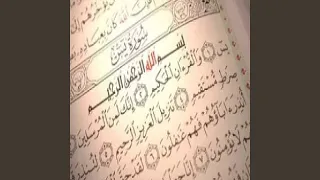 يُؤَخِّرُهُمْ إِلَىٰ
ٱللَّهَ كَانَ بِعِبَادِهِ
سُورَةُ يسٓ
بِسْمِ اللَّهِ الرَّحْمَٰنِ الرَّحِيمِ
يسٓ ١ وَٱلْقُرْءَانِ ٱلْحَكِيمِ ٢ إِنَّكَ لَمِنَ ٱلْمُرْسَلِينَ ٣
صِرَٰطٍ مُّسْتَقِيمٍ ٤ تَنزِيلَ ٱلْعَزِيزِ ٱلرَّحِيمِ ٥ لِتُنذِرَ
أُنذِرَ ءَابَآؤُهُمْ فَهُمْ غَٰفِلُونَ ٦ لَقَدْ حَقَّ
لَا يُؤْمِنُونَ ٧